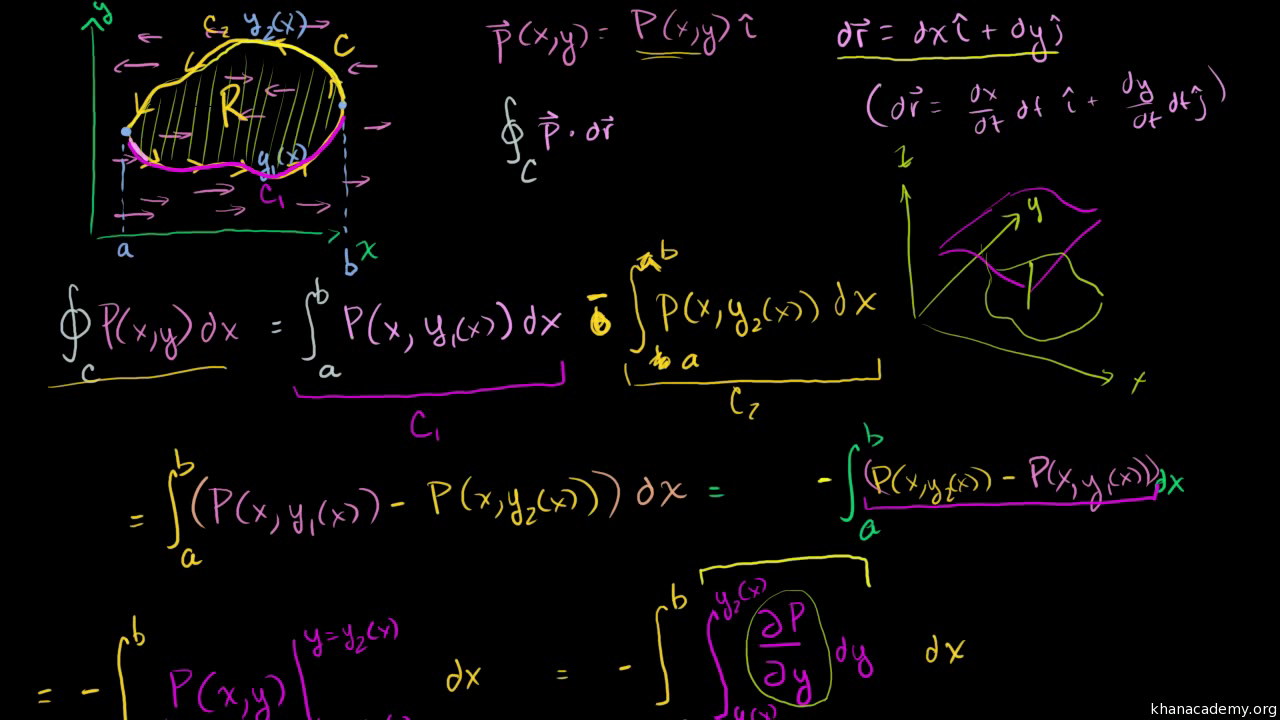 y
C₂ y₂(x) C
R
y₁(x)
C₁
a b x
P⃗(x,y) = P(x,y) î
∮_C P⃗ · dr⃗
dr⃗ = dx î + dy ĵ
(dr⃗ = dx/dt dt î + dy/dt dt ĵ)
z
y
x
∮_C P(x,y) dx = ∫_a^b P(x, y₁(x)) dx − ∫_a^b P(x, y₂(x)) dx
C₁ C₂
= ∫_a^b (P(x, y₁(x)) − P(x, y₂(x))) dx = − ∫_a^b (P(x, y₂(x)) − P(x, y₁(x))) dx
= − ∫^b P(x,y) |^{y=y₂(x)} dx = − ∫^b ∫^{y₂(x)} ∂P/∂y dy dx
khanacademy.org